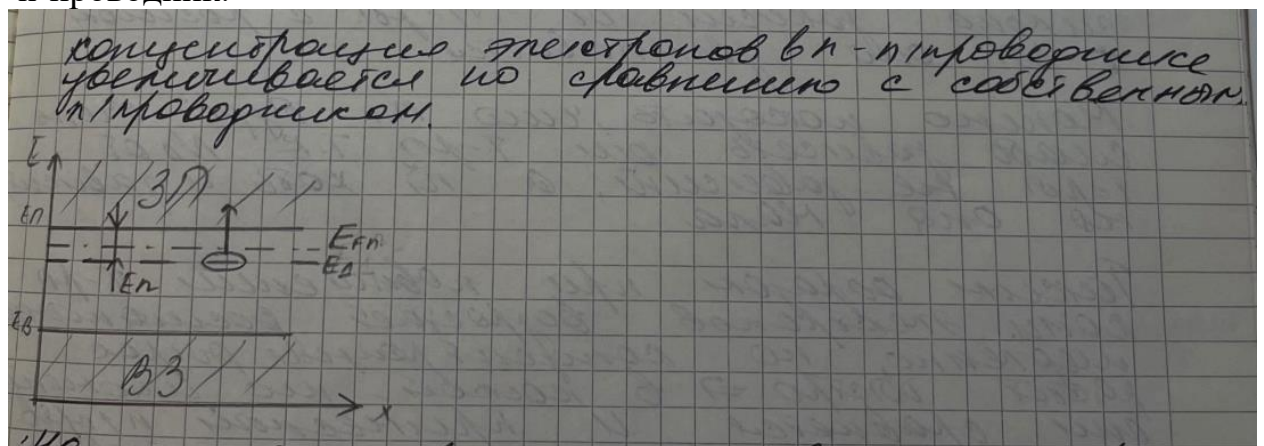 и проводник.
концентрация электронов в n - п/проводнике
увеличивается по сравнению с собственным
п/проводником.
E
ЗП
Eп
EFn
Eд
En
Eв
ВЗ
x